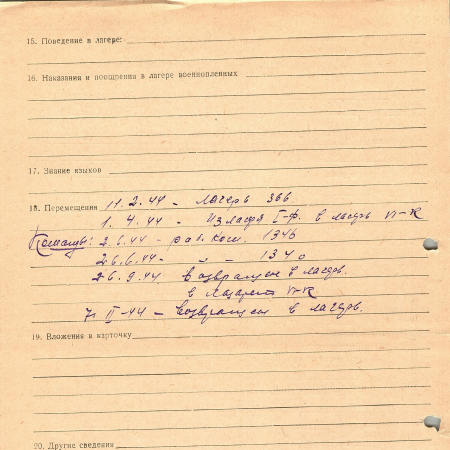 15. Поведение в лагере:
16. Наказания и поощрения в лагере военнопленных
17. Знание языков
18. Перемещения 11.2.44 - лагерь 366
1.4.44 - Из лагеря I-ф. в лагерь VI-К
Команды: 2.6.44 - раб. ком. 1346
26.6.44 - " - " 1340
26.9.44 возвращен в лагерь
в лазарет VI-К
7. II-44 - возвращен в лагерь.
19. Вложения в карточку
20. Другие сведения